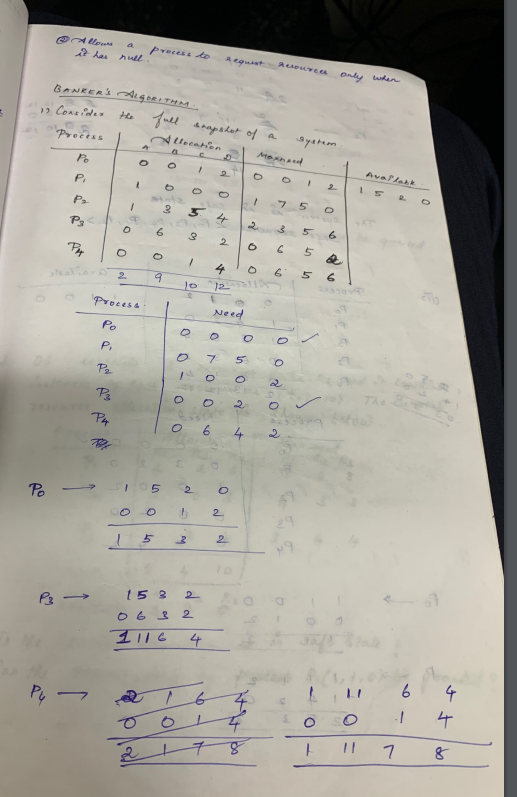 ② Allows a process to request resources only when
it has null.
BANKER'S ALGORITHM
1) Consider the full snapshot of a system.
Process Allocation Maxneed Available
A B C D
P0 0 0 1 2 0 0 1 2 1 5 2 0
P1 1 0 0 0 1 7 5 0
P2 1 3 5 4 2 3 5 6
P3 0 6 3 2 0 6 5 2
P4 0 0 1 4 0 6 5 6
2 9 10 12
Process Need
P0 0 0 0 0 ✓
P1 0 7 5 0
P2 1 0 0 2
P3 0 0 2 0 ✓
P4 0 6 4 2
P0 → 1 5 2 0
0 0 1 2
1 5 3 2
P3 → 1 5 3 2
0 6 3 2
1 11 6 4
P4 → 2 1 6 4 1 11 6 4
0 0 1 4 0 0 1 4
2 1 7 8 1 11 7 8